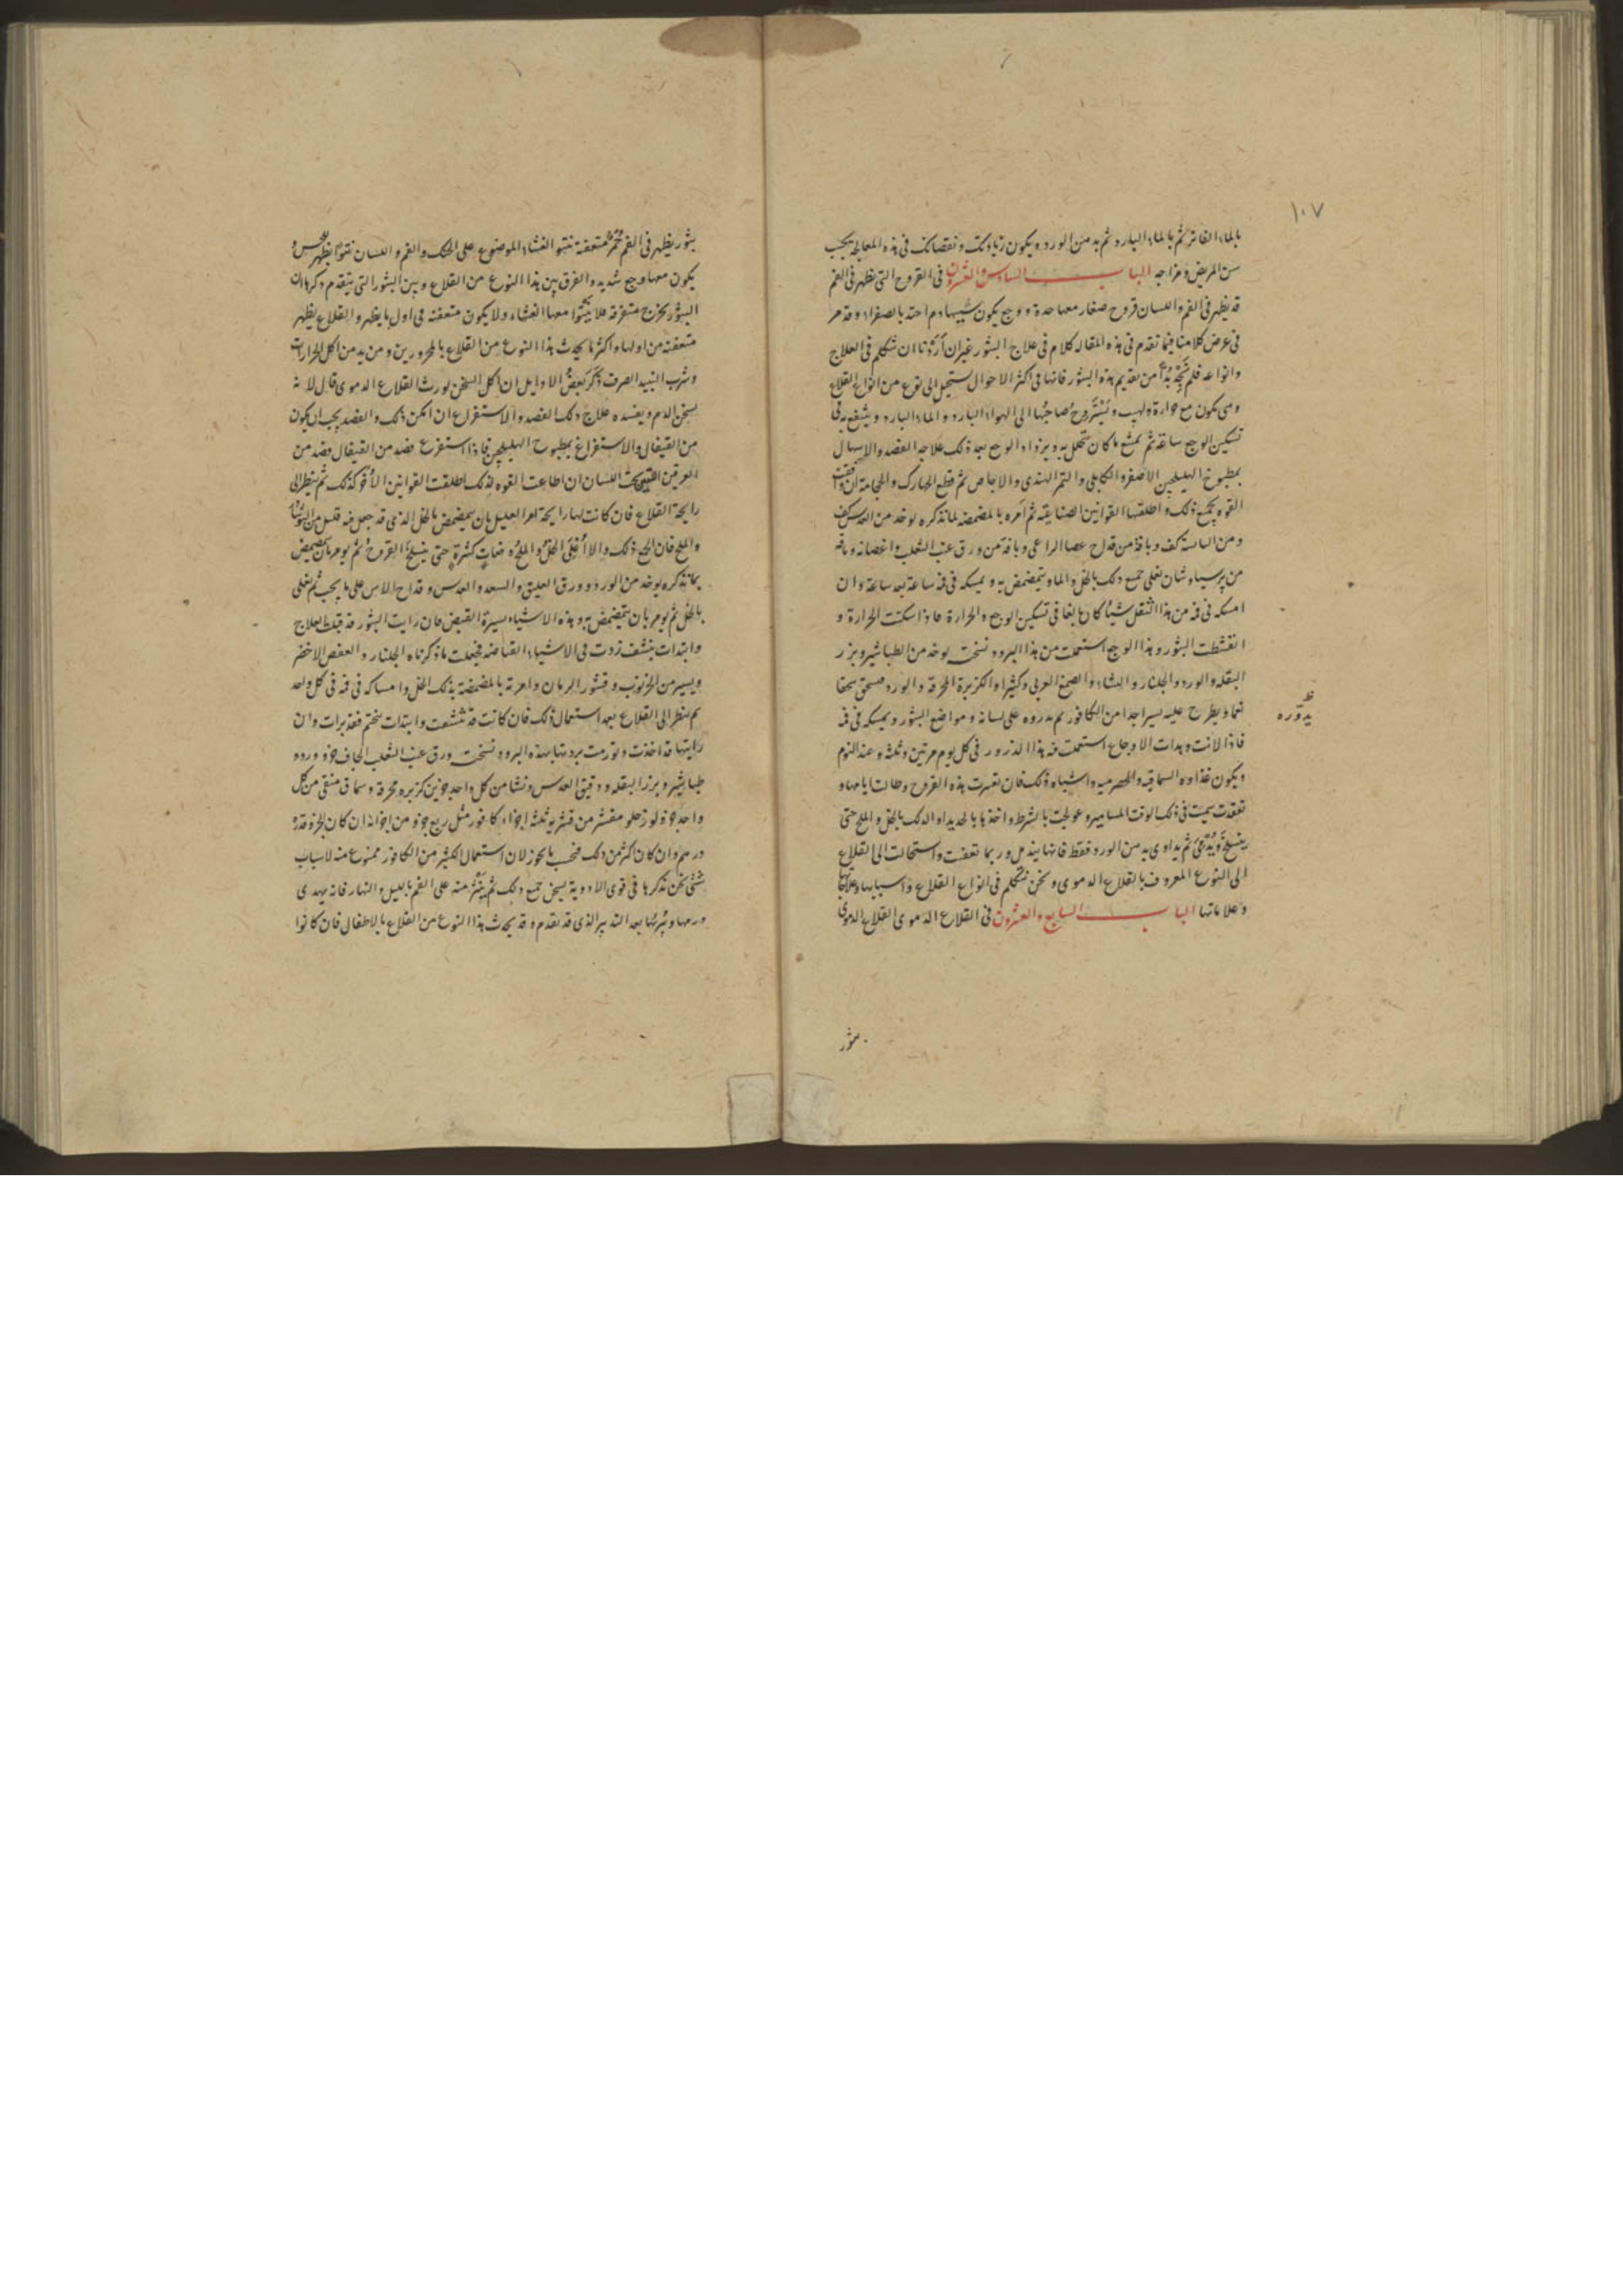 ١٠٧
بالماء الفاتر ثم بالماء البارد ثم بدهن الورد ويكون زيادتك ونقصانك في هذه المعالجة بحسب
سن المريض ومزاجه الباب السادس والعشرون في القروح التي تظهر في الفم
قد يظهر في الفم واللسان قروح صغار معها حدة ووجع يكون سببها دم احتد بالصفراء وقد مر
في عرض كلامنا فيما تقدم في هذه المقاله كلام في علاج البثور غير ان اردنا ان نتكلم في العلاج
وانواعه فلم نجد بدا من تقديم هذه البثور فانها في اكثر الاحوال تستحيل الى نوع من انواع القلاع
ومى يكون مع حرارة ولهيب ويستروح صاحبها الى الهواء البارد والماء البارد وينتفع به في
تسكين الوجع ساعة ثم يمنع ما كان يتحلل به ويزداد الوجع بعد ذلك علاجه الفصد والاسهال
بمطبوخ الهليلجين الاصفر والكابلى والتمر الهندى والاجاص ثم قطع الجهارك والحجامة ان وافقت
القوه بجميع ذلك واطلقتها القوانين الصناعيه ثم امره بالمضمضه لما نذكره يوخد من العدس كف
ومن الباسة كف وباقة من قداح عصا الراعى وباقة من ورق عنب الثعلب واغصانه وباقه
من پرسياوشان تغلى جميع ذلك بالخل والماء ويتمضمض به ويمسكه في فمه ساعة بعد ساعة وان
امسكه في فمه من هذا الثفل شيا كان بالغا في تسكين الوجع والحرارة فاذا سكنت الحرارة و
انقشطت البثور وهذا الوجع استعملت من هذا البرود نسخته يوخد من الطباشير وبزر
البقله والورد والجلنار والنشاء والصمغ العربى وكثيراء والكزبرة المحرقة والورد يسحق سحقا
نعما ويطرح عليه يسيرا جدا من الكافور ثم يدروه على لسانه ومواضع البثور ويمسكه في فمه
ظ
يدوره
فاذا لانت وبدات الاوجاع استعملت فيه هذا الذرور في كل يوم مرتين وثلثه وعند النوم
ويكون غذاوه السماقيه والحصرميه واشباه ذلك فان تغيرت هذه القروح وطالت ايامها و
تعقدت سميت في ذلك الوقت المسامير وعولجت بالشرط واخذها بالحديد او الدلك بالخل والملح حتى
ينسلخ ويدمى ثم يداوى بدهن الورد فقط فانها يندمل وربما تعفنت واستحالت الى القلاع
الى النوع المعروف بالقلاع الدموى ونحن نتكلم في انواع القلاع واسبابها وعلاجاتها
وعلاماتها الباب السابع والعشرون في القلاع الدموى القلاع الدموى
بثور
بثور يظهر في الفم حمر متعفنة تنتو الغشاء الموضوع على الحنك والفم واللسان نتوا يظهر للحس و
يكون معها وجع شديد والفرق بين هذا النوع من القلاع وبين البثور التي يتقدم ذكرها ان
البثور يخرج متفرقة فلا ينتوا معها الغشاء ولا يكون متعفنه في اول ما يظهر والقلاع يظهر
متعفنه من اولها واكثر ما يحدث هذا النوع من القلاع بالمحرورين ومن يدمن اكل الحرارات
وشرب النبيد الصرف ذكر بعض الاوايل ان اكل السخن يورث القلاع الدموى قال لانه
يسخن الدم ويفسده علاج ذلك الفصد والاستفراغ ان امكن ذلك والفصد يجب ان يكون
من القيفال والاستفراغ بمطبوخ الهليلجين فاذا استفرغ فصد من القيفال فصد من
العرقين تحت اللسان ان اطاعت القوه لذلك اطلقت القوانين الاخر كذلك ثم ينظر الى
رايحة القلاع فان كانت لها رايحة امر العليل بان يتمضمض بالخل الذى قد جعل فيه قليل من
والملح فان انجح ذلك والا اغلى الخل والملح دفعات كثيرة حتى ينسلخ القروح ثم يومر بان يتمضمض
بما نذكره يوخد من الورد وورق العليق والسعد والعدس وقداح الاس على ما يجب ثم تغلى
بالخل ثم يومر بان يتمضمض به وهذه الاشياء يسيرة القبض فان رايت البثور قد قبلت العلاج
وابتدات ينشف زدت في الاشياء القابضه فجعلت ما ذكرناه الجلنار والعفص الاخضر
ويسير من الخرنوب وقشور الرمان وامرته بالمضمضة بذلك الخل وامساكه في فمه في كل واحد
ثم ينظر الى القلاع بعد استعمال ذلك فان كانت قد نشفت وابتدات يختم فقد برات وان
رايتها قد اخذت وتورمت بردتها بهذه البرود نسخته ورق عنب الثعلب الجاف جزو ورده
طباشير وبزر البقله ودقيق العدس ونشا من كل واحد جزين كزبره محرقة وسماق منقى من كل
واحد جزو لوز حلو مقشر من قشريه ثلثه اجزاء كافور مثل ربع جزو من اجزائه ان كان الجزو قدره
درهم وان كان اكثر من ذلك فبحسب ما يجوز لان استعمال الكثير من الكافور ممنوع منه لاسباب
شتى نحن نذكرها في قوى الادوية يسحق جميع ذلك ثم ينثر منه على الفم بالليل والنهار فانه يهدى
ورمها ويبريها بعد التدبير الذى قد تقدم وقد يحدث هذا النوع من القلاع بالاطفال فان كانوا